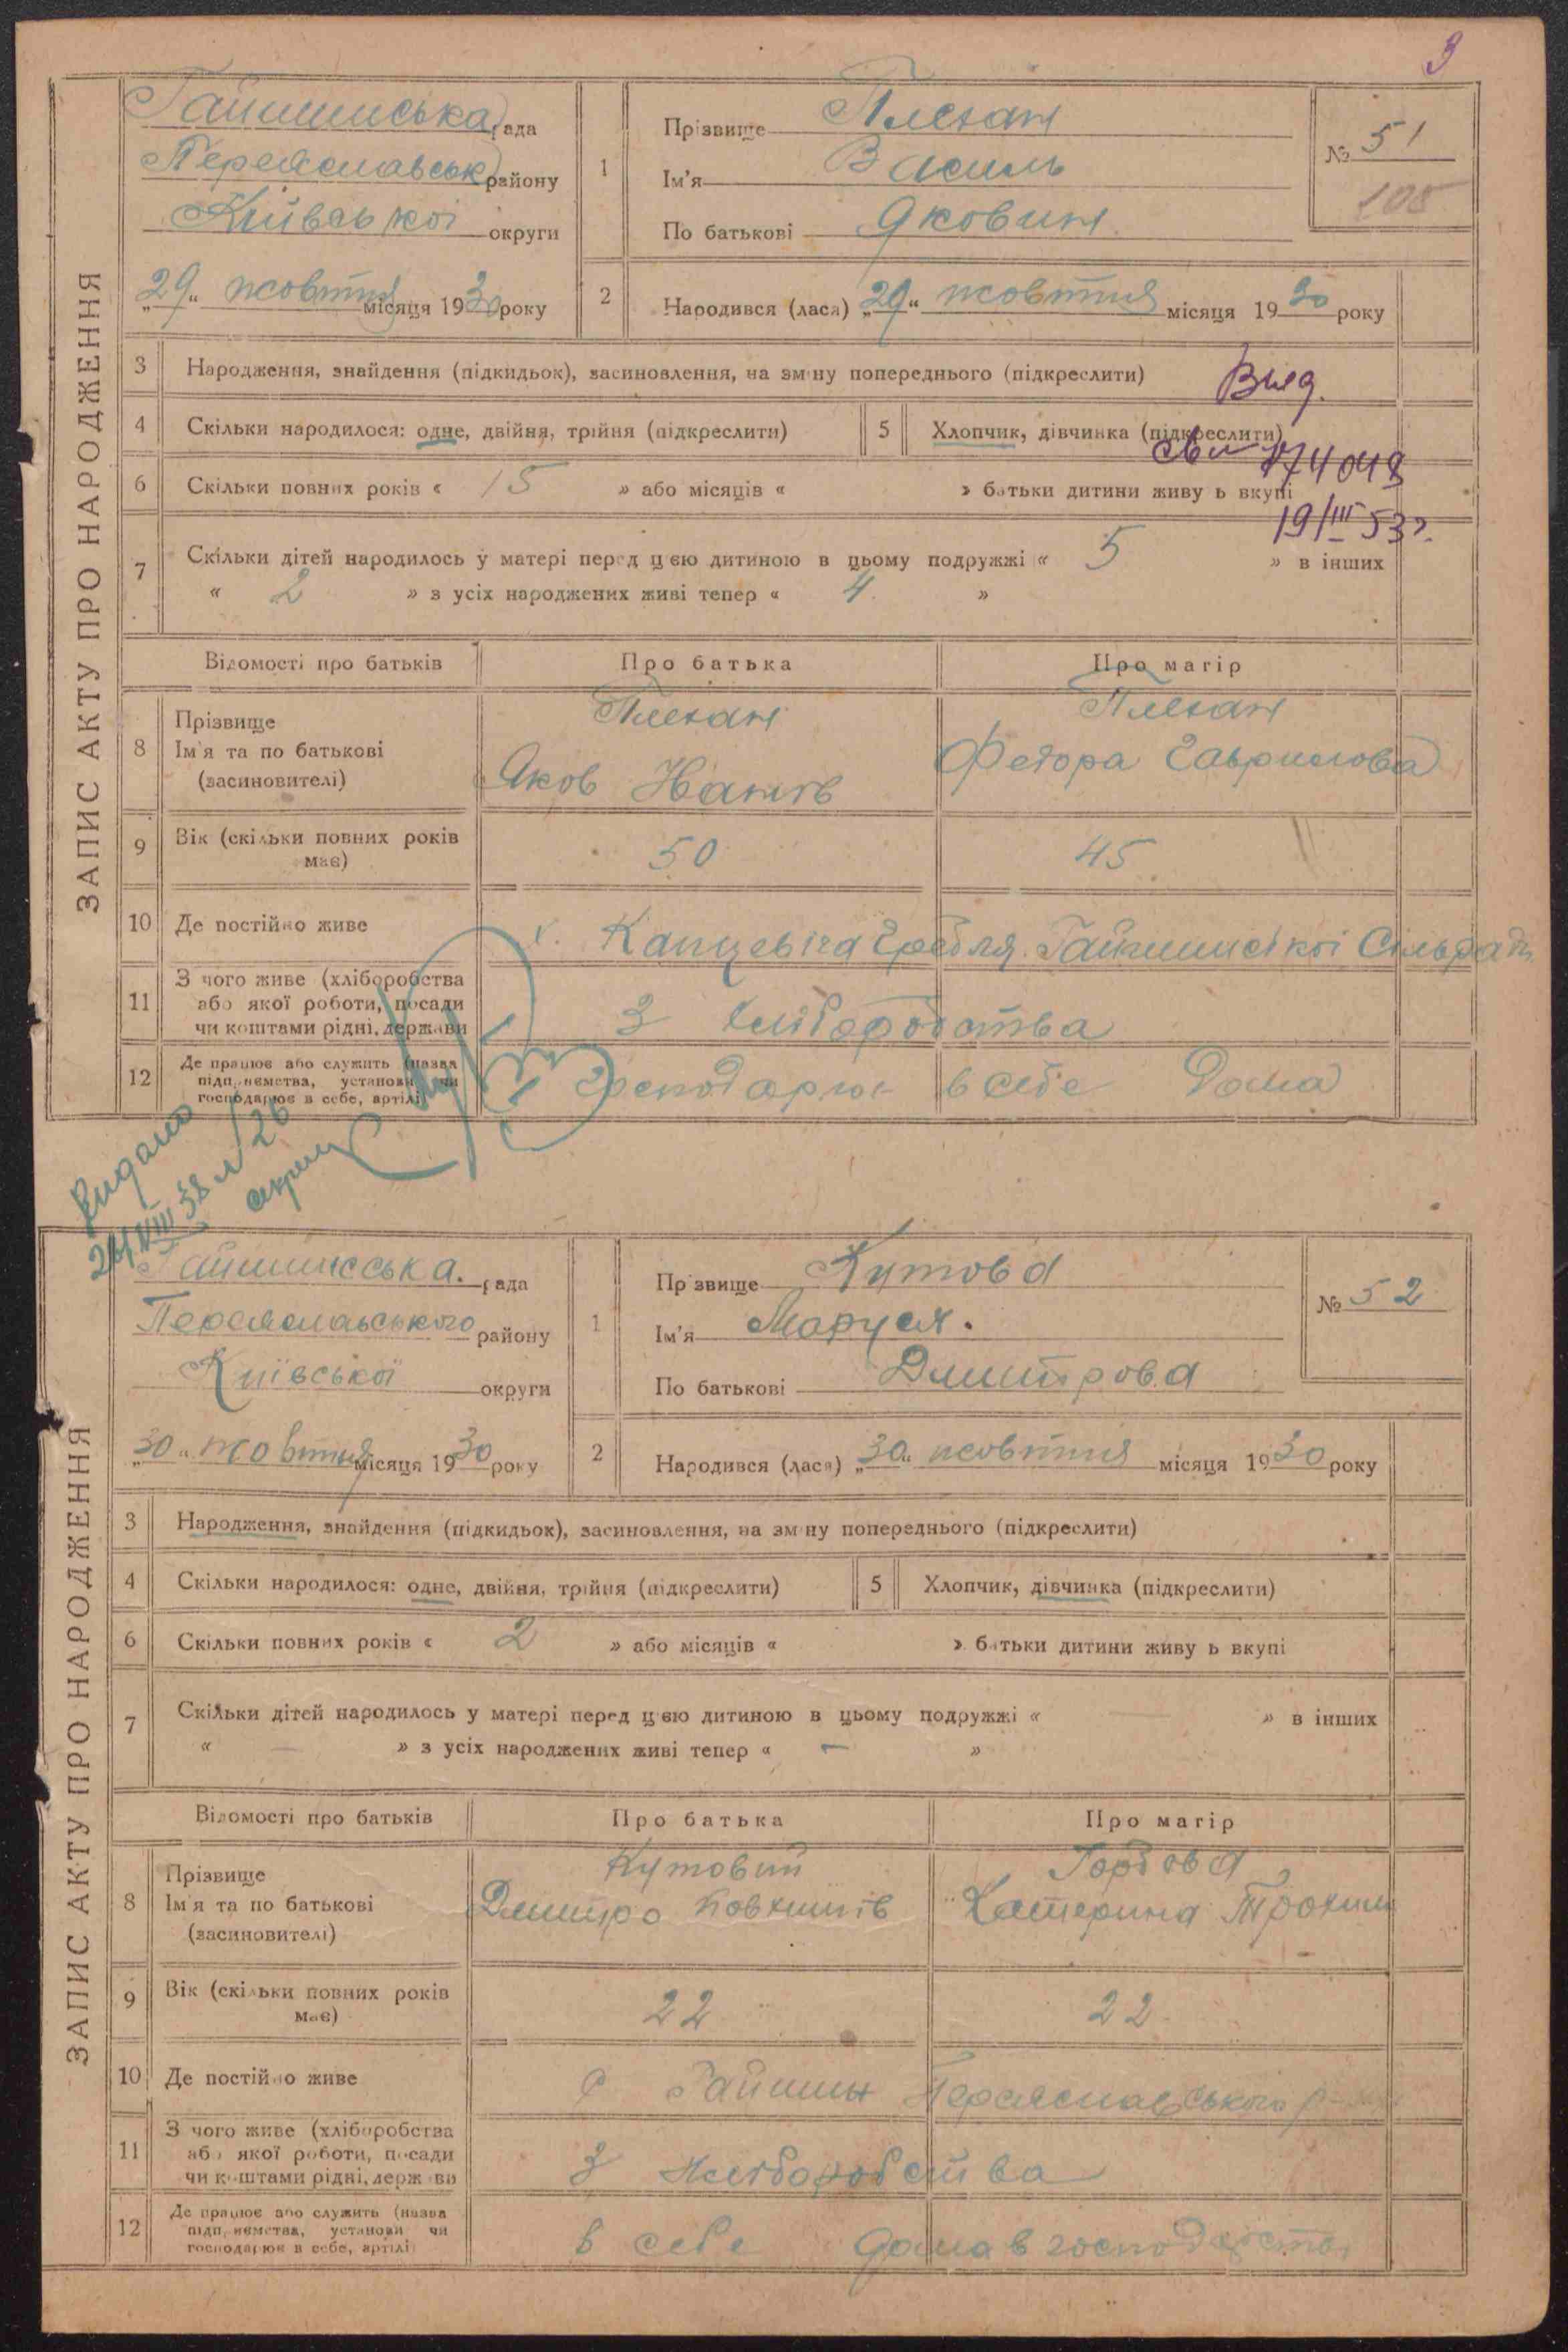 3
ЗАПИС АКТУ ПРО НАРОДЖЕННЯ
Гайшинська рада
Переяславськ району
Київської округи
„29“ жовтня місяця 1930 року
1
Прізвище Плехан
Ім'я Василь
По батькові Яковин
№ 51
108
2
Народився (лася) „29“ жовтня місяця 1930 року
3 Народження, знайдення (підкидьок), засиновлення, на зміну попереднього (підкреслити)
4 Скільки народилося: одне, двійня, трійня (підкреслити)
5 Хлопчик, дівчинка (підкреслити)
174049
6 Скільки повних років « 15 » або місяців « » батьки дитини живуть вкупі
19/III 53 г.
7 Скільки дітей народилось у матері перед цією дитиною в цьому подружжі « 5 » в інших
« 2 » з усіх народжених живі тепер « 4 »
Відомості про батьків Про батька Про матір
8 Прізвище
Ім'я та по батькові
(засиновителі)
Плехан
Яков Йванів
Плехан
Федора Гаврилова
9 Вік (скільки повних років
має)
50 45
10 Де постійно живе
х. Гребля Гайшинської Сільради
11 З чого живе (хліборобства
або якої роботи, посади
чи коштами рідні, держави
З хліборобства
12 Де працює або служить (назва
підприємства, установи чи
господарює в себе, артілі)
Господарює в себе дома
видано
26/VIII 38 № 26
ЗАПИС АКТУ ПРО НАРОДЖЕННЯ
Гайшинська. рада
Переяславського району
Київської округи
„30“ жовтня місяця 1930 року
1
Прізвище Кутова
Ім'я Маруся.
По батькові Дмитрова
№ 52
2
Народився (лася) „30“ жовтня місяця 1930 року
3 Народження, знайдення (підкидьок), засиновлення, на зміну попереднього (підкреслити)
4 Скільки народилося: одне, двійня, трійня (підкреслити)
5 Хлопчик, дівчинка (підкреслити)
6 Скільки повних років « 2 » або місяців « » батьки дитини живуть вкупі
7 Скільки дітей народилось у матері перед цією дитиною в цьому подружжі « — » в інших
« — » з усіх народжених живі тепер « — »
Відомості про батьків Про батька Про матір
8 Прізвище
Ім'я та по батькові
(засиновителі)
Кутовий
Дмитро
Горбова
Катерина Трохим
9 Вік (скільки повних років
має)
22 22
10 Де постійно живе
с Гайшин Переяславського р
11 З чого живе (хліборобства
або якої роботи, посади
чи коштами рідні, держави
З хліборобства
12 Де працює або служить (назва
підприємства, установи чи
господарює в себе, артілі)
в себе дома в господарстві